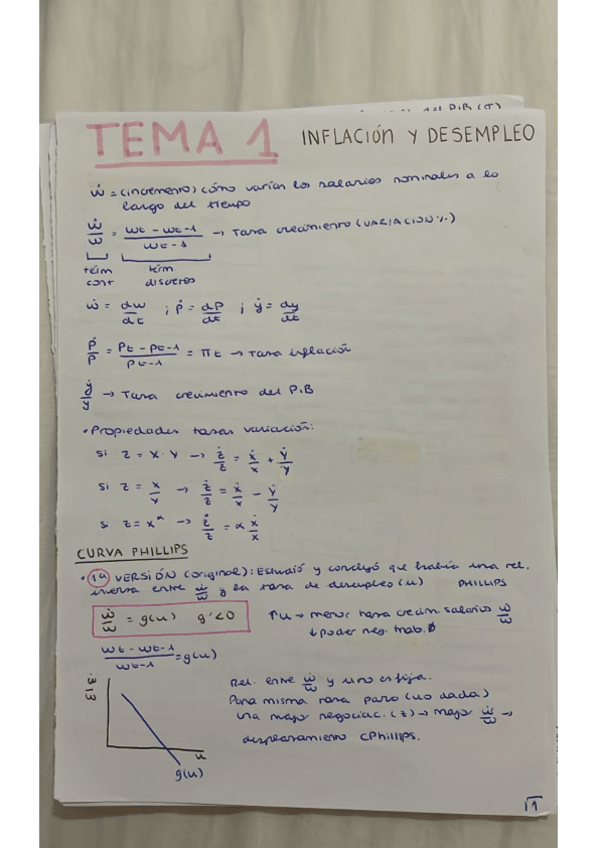 del P.B (T)
TEMA 1 INFLACIÓN Y DESEMPLEO
ẇ = (incremento) cómo varían los salarios nominales a lo
largo del tiempo
ẇ/w = (wt - wt-1)/(wt-1) → Tasa crecimiento (VARIACIÓN %)
térm cont térm discretos
ẇ = dw/dt ; ṗ = dP/dt ; ẏ = dy/dt
ṗ/p = (Pt - Pt-1)/(Pt-1) = πt → Tasa inflación
ẏ/y → Tasa crecimiento del P.B
• Propiedades tasas variación:
Si z = x · y → ż/z = ẋ/x + ẏ/y
Si z = x/y → ż/z = ẋ/x - ẏ/y
Si z = x^α → ż/z = α ẋ/x
CURVA PHILLIPS
• 1ª VERSIÓN (original): Estudió y concluyó que había una rel.
inversa entre ẇ/w y la tasa de desempleo (u) PHILLIPS
ẇ/w = g(u) g'<0 ↑u → menor tasa crecim. salarios ẇ/w
↓ poder neg. trab.
(wt - wt-1)/(wt-1) = g(u)
Rel. entre ẇ/w y u no es fija.
Para misma tasa paro (u0 dada)
una mayor negociac. (z) → mayor ẇ/w →
desplazamiento CPhillips.
ẇ/w
u
g(u)
1